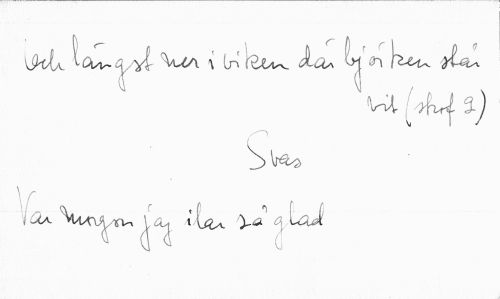 och längst ner i viken där björken står
vit (strof 2)
Svas
Var morgon jag ilar så glad